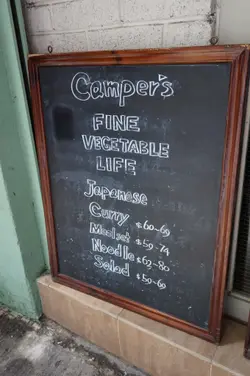 Camper's
FINE
VEGETABLE
LIFE
Japanese
Curry $60~69
Mealset $59~74
Noodle $62~80
Salad $59~69